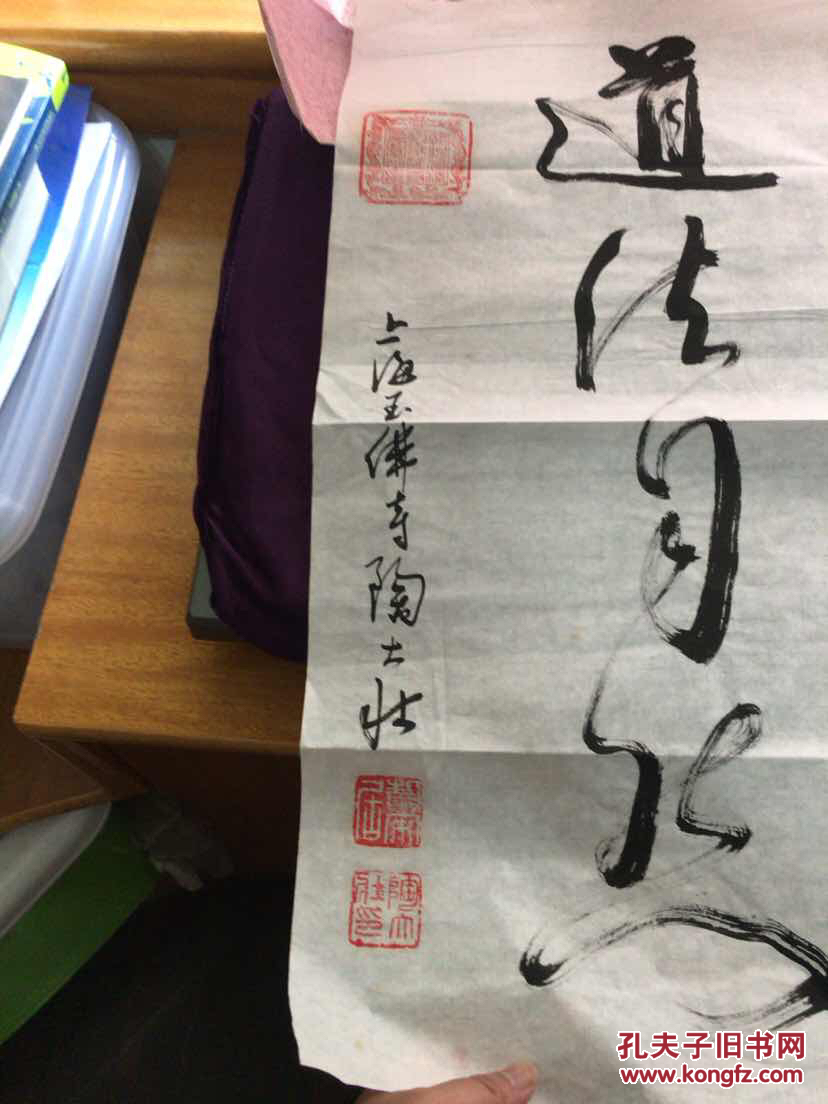 道法自然
上海玉佛寺陶大壮
陶大壮印
孔夫子旧书网
www.kongfz.com